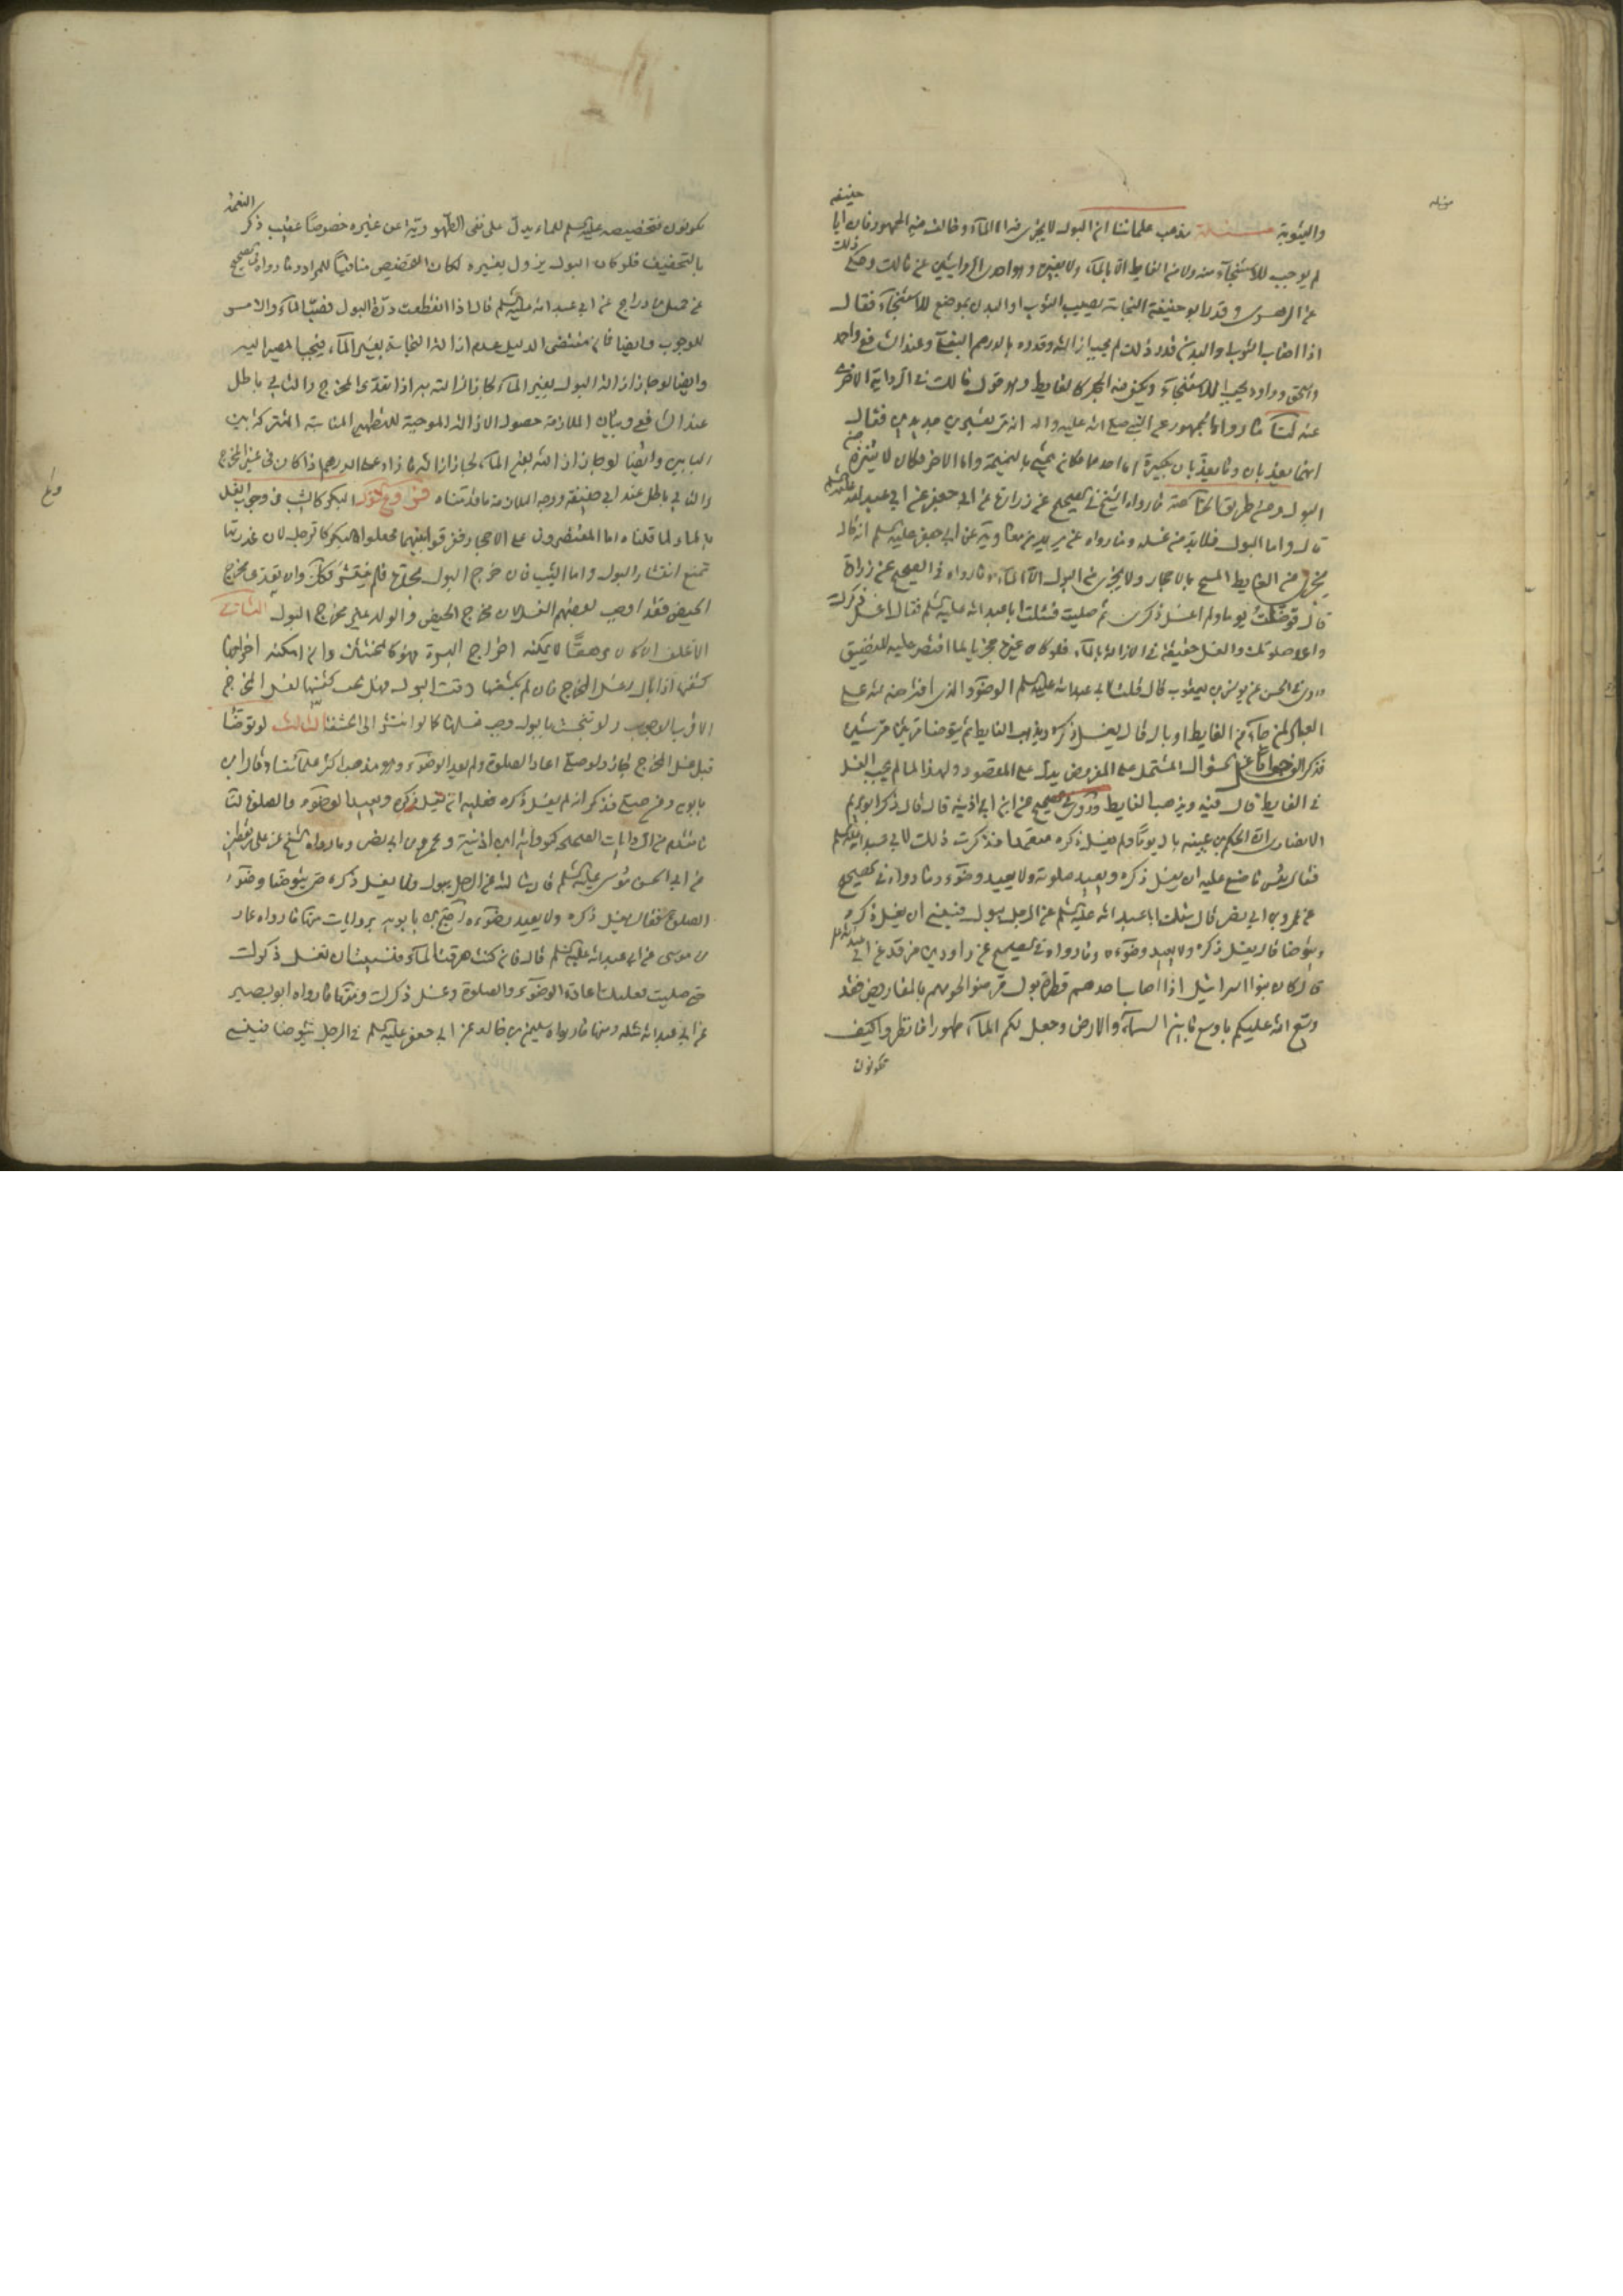 والمثوبة مسئلة مذهب علمائنا ان البول لا يجزى فيه الا المآء وخالف فيه الجمهور فان ابا حنيفة
لم يوجب للاستنجآء منه ولا من الغايط الا بالمآء ولا بغيره وهو احدى الروايتين عن مالك وحكى ذلك
عن الزهرى وقدر ابو حنيفة النجاسة يصيب الثوب او البدن بموضع للاستنجآء فقال
اذا اصاب الثوب او البدن قدر ذلك لم يجب ازالته وقدره بالدرهم البغلى وعند الشافعى واحمد
واسحق وداود يجب الاستنجآء ويكفى فيه الحجر كالغايط وهو قول مالك فى الرواية الاخرى
عنه لنا ما رواه الجمهور عن النبى صلى الله عليه واله انه مر بقبرين جديدين فقال
انهما يعذبان وما يعذبان بكبيرة اما احدهما فكان يمشى بالنميمة واما الاخر فكان لا يتنزه من
البول ومن طريق الخاصة ما رواه الشيخ فى الصحيح عن زرارة عن ابى جعفر عن ابى عبد الله عليه السلم
قال واما البول فلا بد من غسله وما رواه عن بريد بن معاوية عن ابى جعفر عليه السلم انه قال
يجزى من الغايط المسح بالاحجار ولا يجزى من البول الا المآء وما رواه فى الصحيح عن زرارة
قال توضئت يوما ولم اغسل ذكرى ثم صليت فسئلت ابا عبد الله عليه السلم فقال اغسل ذكرك
واعد صلوتك والغسل حقيقة فى الازالة بالمآء فلو كان غيره مجزيا لما اقتصر عليه للتضييق
وروى فى الحسن عن يونس بن يعقوب قال قلت لابى عبد الله عليه السلم الوضوء الذى افترضه الله على
العباد لمن جآء من الغايط او بال قال يغسل ذكره ويذهب الغايط ثم يتوضا مرتين مرتين
فذكر الوضوء جوابا عن السؤال المشتمل على المفروض يدل على المقصود ولهذا لما لم يجب الغسل
فى الغايط قال فيه ويذهب الغايط وروى فى الصحيح عن ابن ابى اذينة قال قال ذكر ابو مريم
الانصارى ان الحكم بن عيينه بال يوما ولم يغسل ذكره متعمدا فذكرت ذلك لابى عبد الله عليه السلم
فقال بئس ما صنع عليه ان يغسل ذكره ويعيد صلوته ولا يعيد وضوءه وما رواه فى الصحيح
عن عمرو بن ابى نصر قال سئلت ابا عبد الله عليه السلم عن الرجل يبول فينسى ان يغسل ذكره
ويتوضا قال يغسل ذكره ولا يعيد وضوءه وما رواه فى الصحيح عن داود بن فرقد عن ابى عبد الله عليه السلم
قال كان بنوا اسرائيل اذا اصاب احدهم قطرة بول قرضوا لحومهم بالمقاريض وقد
وسع الله عليكم باوسع ما بين السمآء والارض وجعل لكم المآء طهورا فانظروا كيف
تكونون
تكونون فتخصيصه عليه السلم للماء يدل على نفى الطهورية عن غيره خصوصا عقيب ذكر النعمة
بالتخفيف فلو كان البول يزول بغيره لكان التخصيص منافيا للمراد وما رواه فى الصحيح
عن جميل بن دراج عن ابى عبد الله عليه السلم قال اذا انقطعت درة البول فصب المآء والامر
للوجوب وايضا فان مقتضى الدليل عدم ازالة النجاسة بغير المآء فيجب المصير اليه
وايضا لو جاز ازالة البول بغير المآء لجاز ازالته به اذا تعدى المخرج والتالى باطل
عند الشافعى وبيان الملازمة حصول الازالة الموجبة للتطهير المناسبة المشتركة بين
البابين وايضا لو جاز ازالته بغير المآء لجاز ازالة ما زاد على الدرهم اذا كان فى غير المخرج
والتالى باطل عند ابى حنيفة ووجه الملازمة ما قدمناه فروع الاول البكر كالثيب فى وجوب الغسل
بالماء لما قلناه اما المقتصرون على الاحجار ففرقوا بينهما فجعلوا البكر كالرجل لان عذرتها
تمنع انتشار البول واما الثيب فان خرج البول بحدته فلم ينتشر فكذلك وان تعدى الى مخرج
الحيض فقد اوجب بعضهم الغسل لان مخرج الحيض والولد غير مخرج البول الثانى
الاغلف ان كان مرتتقا لا يمكنه اخراج البشرة فهو كالمختتن وان امكنه اخراجها
كشفها اذا بال وغسل المخرج فان لم يكشفها وقت البول فهل يجب كشفها لغسل المخرج
الاقرب الوجوب ولو تنجست بالبول وجب غسلها كما لو انتشر الى الحشفة الثالث لو توضا
قبل غسل المخرج جاز ولو صلى اعاد الصلوة ولم يعد الوضوء وهو مذهب اكثر علمآئنا وقال ابن
بابويه ومن صلى فذكر انه لم يغسل ذكره فعليه ان يغسل ذكره ويعيد الوضوء والصلوة لنا
ما تقدم من الروايات الصحيحة كرواية ابن اذينة وعمرو بن ابى نصر وما رواه الشيخ عن على بن يقطين
عن ابى الحسن موسى عليه السلم قال سئلته عن الرجل يبول فلا يغسل ذكره حتى يتوضا وضوء
الصلوة فقال يغسل ذكره ولا يعيد وضوءه احتج ابن بابويه بروايات منها ما رواه عمار
بن موسى عن ابى عبد الله عليه السلم قال فان كنت اهرقت المآء فنسيت ان تغسل ذكرك
حتى صليت فعليك اعادة الوضوء والصلوة وغسل ذكرك ومنها ما رواه ابو بصير
عن ابى عبد الله مثله ومنها ما رواه سليمن بن خالد عن ابى جعفر عليه السلم فى الرجل يتوضا فينسى